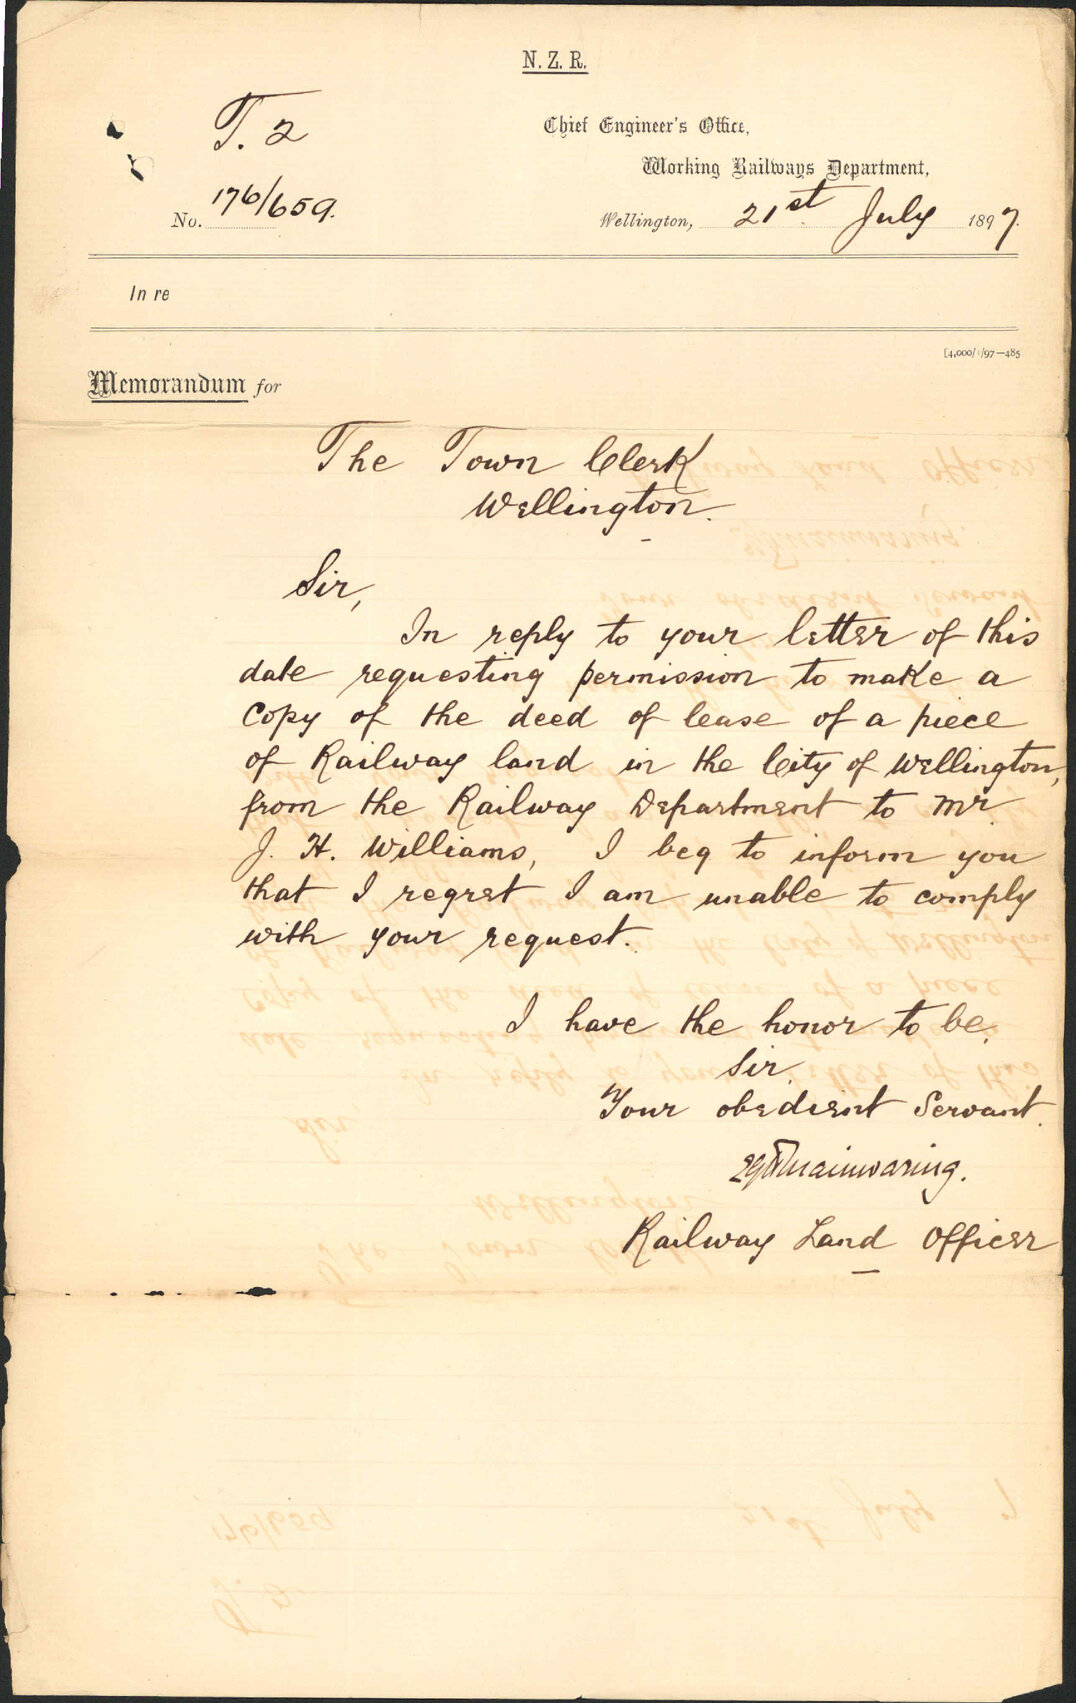 N. Z. R.
T. 2
Chief Engineer's Office,
Working Railways Department,
No. 176/659.
Wellington, 21st July 1897.
In re
[4,000/1/97—485
Memorandum for
The Town Clerk
Wellington.
Sir,
In reply to your letter of this
date requesting permission to make a
copy of the deed of lease of a piece
of Railway land in the City of Wellington,
from the Railway Department to Mr
J. H. Williams, I beg to inform you
that I regret I am unable to comply
with your request.
I have the honor to be,
Sir,
Your obedient Servant.
Mainwaring.
Railway Land Officer